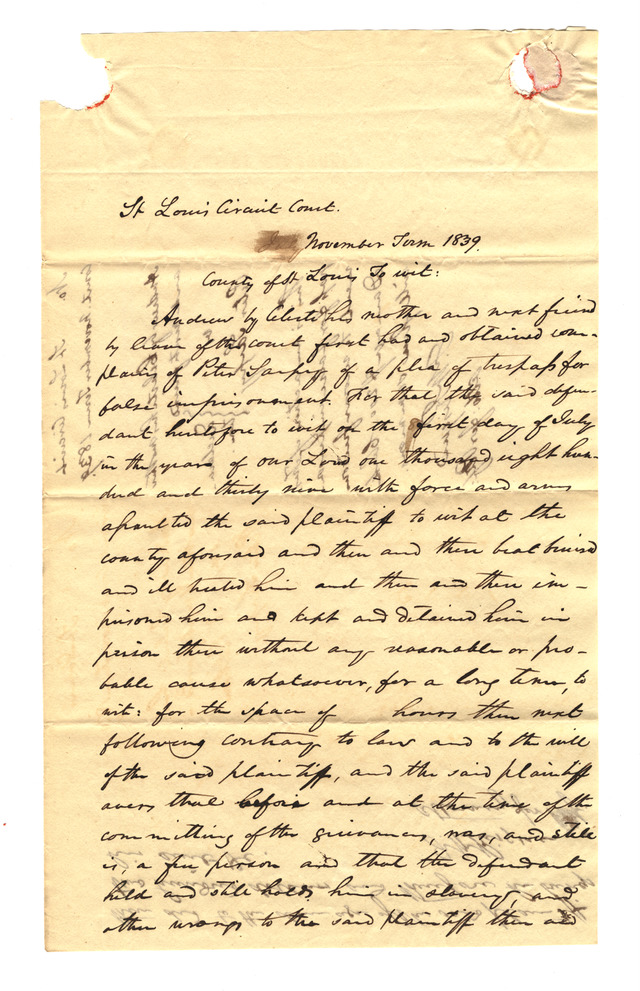 St Louis Circuit Court.
November Term 1839.
County of St Louis To wit:
Andrew by Celeste his mother and next friend
by leave of the court first had and obtained com-
plains of Peter Sarpy of a plea of trespass for
false imprisonment. For that the said defen-
dant heretofore to wit on the first day of July
in the year of our Lord one thousand eight hun-
dred and thirty nine with force and arms
assaulted the said plaintiff to wit at the
county aforesaid and then and there beat bruised
and ill treated him and then and there im-
prisoned him and kept and detained him in
prison there without any reasonable or pro-
bable cause whatsoever, for a long time, to
wit: for the space of hours then next
following contrary to law and to the will
of the said plaintiff, and the said plaintiff
avers that before and at the time of the
committing of the grievances, was, and still
is, a free person and that the defendant
held and still holds him in slavery, and
other wrongs to the said plaintiff then and